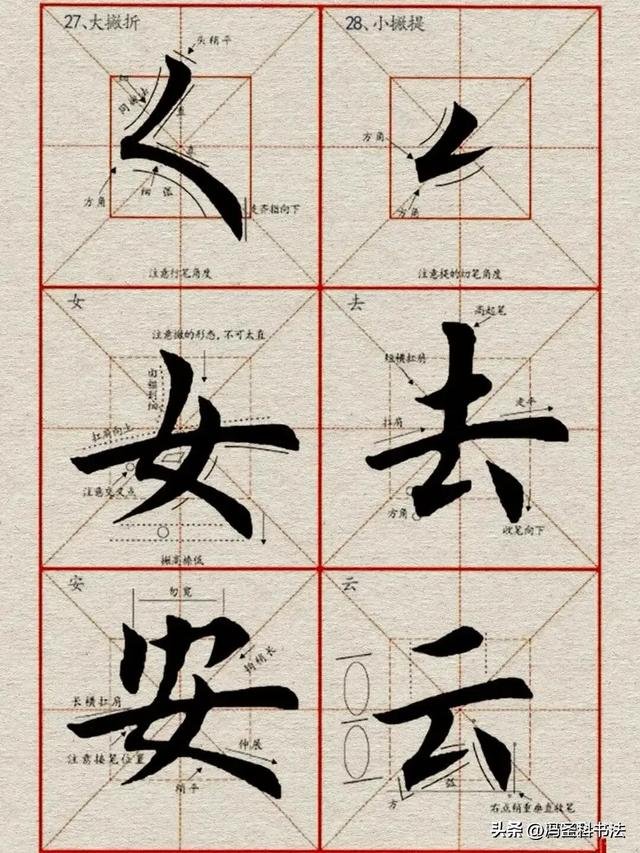 27、大撇折
头稍平
直
直
方角
细
弧
走弄指向下
注意行笔角度
28、小撇提
方角
方角
注意提的切笔角度
女
注意撇的形态，不可太直
由粗到细
扛肩向上
注意交叉点
撇高捺低
女
去
高起笔
短横扛肩
走平
扛肩
方角
收笔向下
去
安
勿宽
钩稍长
长横扛肩
注意接笔位置
伸展
稍平
安
云
方
弧
右点稍重垂直收笔
云
头条 @冯圣科书法